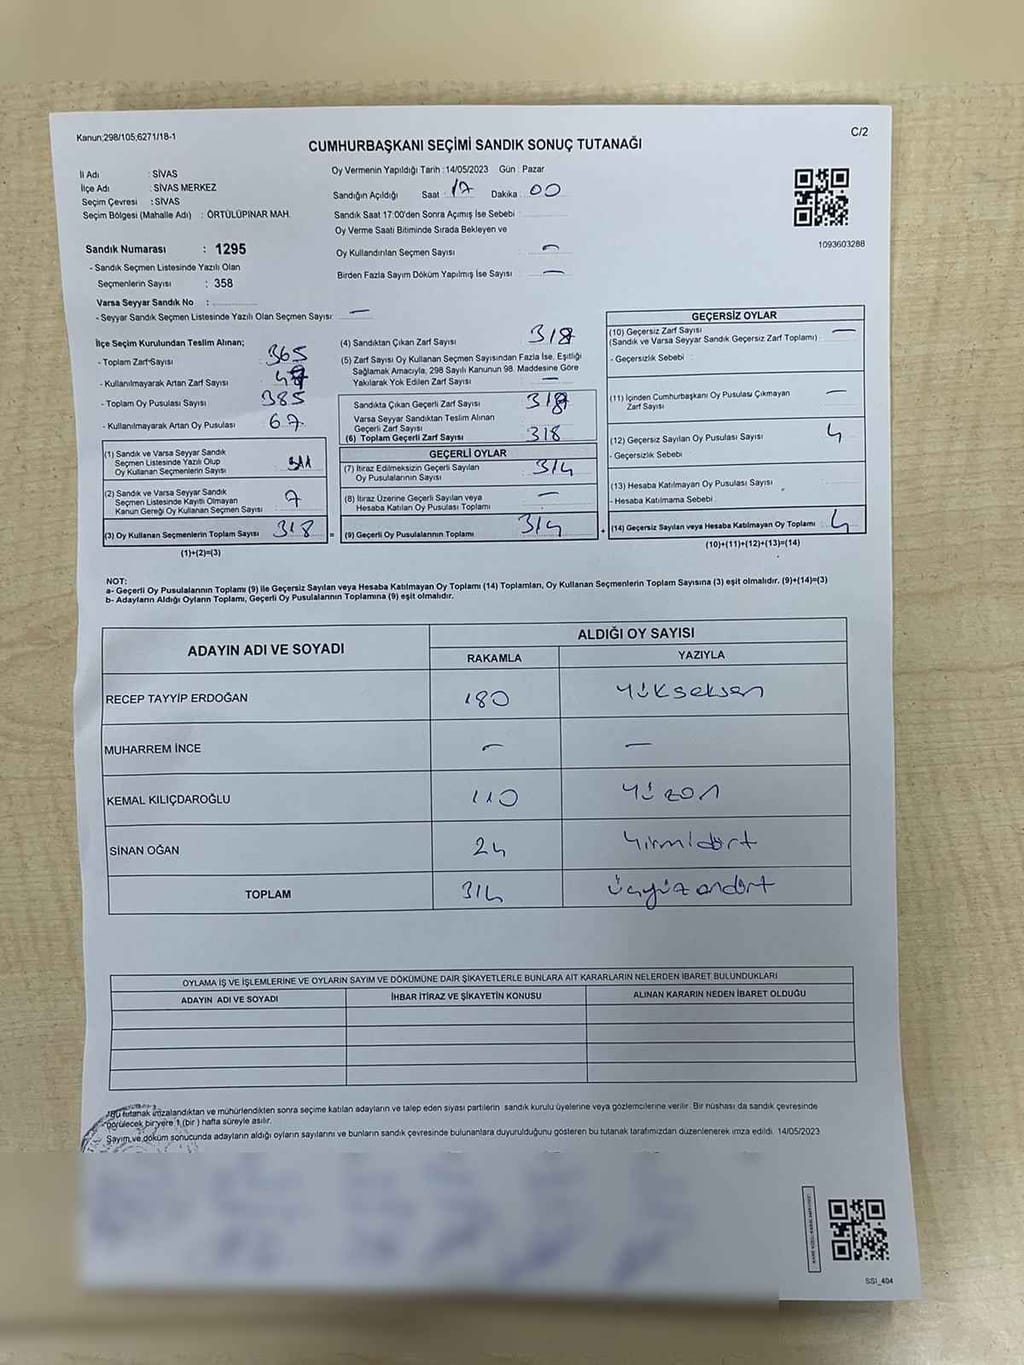 Kanun;298/105,6271/18-1
C/2
CUMHURBAŞKANI SEÇİMİ SANDIK SONUÇ TUTANAĞI
İl Adı : SİVAS
İlçe Adı : SİVAS MERKEZ
Seçim Çevresi : SİVAS
Seçim Bölgesi (Mahalle Adı) : ÖRTÜLÜPINAR MAH.
Sandık Numarası : 1295
- Sandık Seçmen Listesinde Yazılı Olan
Seçmenlerin Sayısı : 358
Varsa Seyyar Sandık No :
- Seyyar Sandık Seçmen Listesinde Yazılı Olan Seçmen Sayısı: —
Oy Vermenin Yapıldığı Tarih : 14/05/2023 Gün : Pazar
Sandığın Açıldığı Saat 17 Dakika 00
Sandık Saat 17:00'den Sonra Açımış İse Sebebi
Oy Verme Saati Bitiminde Sırada Bekleyen ve
Oy Kullandırılan Seçmen Sayısı —
Birden Fazla Sayım Döküm Yapılmış İse Sayısı —
1093603288
İlçe Seçim Kurulundan Teslim Alınan;
- Toplam Zarf Sayısı 365
- Kullanılmayarak Artan Zarf Sayısı
- Toplam Oy Pusulası Sayısı 385
- Kullanılmayarak Artan Oy Pusulası 67
(1) Sandık ve Varsa Seyyar Sandık
Seçmen Listesinde Yazılı Olup
Oy Kullanan Seçmenlerin Sayısı 311
(2) Sandık ve Varsa Seyyar Sandık
Seçmen Listesinde Kayıtlı Olmayan
Kanun Gereği Oy Kullanan Seçmen Sayısı 7
(3) Oy Kullanan Seçmenlerin Toplam Sayısı 318
(1)+(2)=(3)
(4) Sandıktan Çıkan Zarf Sayısı 318
(5) Zarf Sayısı Oy Kullanan Seçmen Sayısından Fazla İse, Eşitliği
Sağlamak Amacıyla, 298 Sayılı Kanunun 98. Maddesine Göre
Yakılarak Yok Edilen Zarf Sayısı —
Sandıkta Çıkan Geçerli Zarf Sayısı 318
Varsa Seyyar Sandıktan Teslim Alınan
Geçerli Zarf Sayısı
(6) Toplam Geçerli Zarf Sayısı 318
GEÇERLİ OYLAR
(7) İtiraz Edilmeksizin Geçerli Sayılan
Oy Pusulalarının Sayısı 314
(8) İtiraz Üzerine Geçerli Sayılan veya
Hesaba Katılan Oy Pusulası Toplamı —
= (9) Geçerli Oy Pusulalarının Toplamı 314 +
GEÇERSİZ OYLAR
(10) Geçersiz Zarf Sayısı —
(Sandık ve Varsa Seyyar Sandık Geçersiz Zarf Toplamı)
- Geçersizlik Sebebi
(11) İçinden Cumhurbaşkanı Oy Pusulası Çıkmayan —
Zarf Sayısı
(12) Geçersiz Sayılan Oy Pusulası Sayısı 4
- Geçersizlik Sebebi
(13) Hesaba Katılmayan Oy Pusulası Sayısı
- Hesaba Katılmama Sebebi
(14) Geçersiz Sayılan veya Hesaba Katılmayan Oy Toplamı 4
(10)+(11)+(12)+(13)=(14)
NOT:
a- Geçerli Oy Pusulalarının Toplamı (9) ile Geçersiz Sayılan veya Hesaba Katılmayan Oy Toplamı (14) Toplamları, Oy Kullanan Seçmenlerin Toplam Sayısına (3) eşit olmalıdır. (9)+(14)=(3)
b- Adayların Aldığı Oyların Toplamı, Geçerli Oy Pusulalarının Toplamına (9) eşit olmalıdır.
ADAYIN ADI VE SOYADI ALDIĞI OY SAYISI
RAKAMLA YAZIYLA
RECEP TAYYİP ERDOĞAN 180 Yükseksen
MUHARREM İNCE — —
KEMAL KILIÇDAROĞLU 110 Yüzon
SİNAN OĞAN 24 Yirmidört
TOPLAM 314 Üçyüzondört
OYLAMA İŞ VE İŞLEMLERİNE VE OYLARIN SAYIM VE DÖKÜMÜNE DAİR ŞİKAYETLERLE BUNLARA AİT KARARLARIN NELERDEN İBARET BULUNDUKLARI
ADAYIN ADI VE SOYADI İHBAR İTİRAZ VE ŞİKAYETİN KONUSU ALINAN KARARIN NEDEN İBARET OLDUĞU
Bu tutanak imzalandıktan ve mühürlendikten sonra seçime katılan adayların ve talep eden siyasi partilerin sandık kurulu üyelerine veya gözlemcilerine verilir. Bir nüshası da sandık çevresinde
görülecek bir yere 1 (bir ) hafta süreyle asılır.
Sayım ve döküm sonucunda adayların aldığı oyların sayılarını ve bunların sandık çevresinde bulunanlara duyurulduğunu gösteren bu tutanak tarafımızdan düzenlenerek imza edildi. 14/05/2023
SSI_404